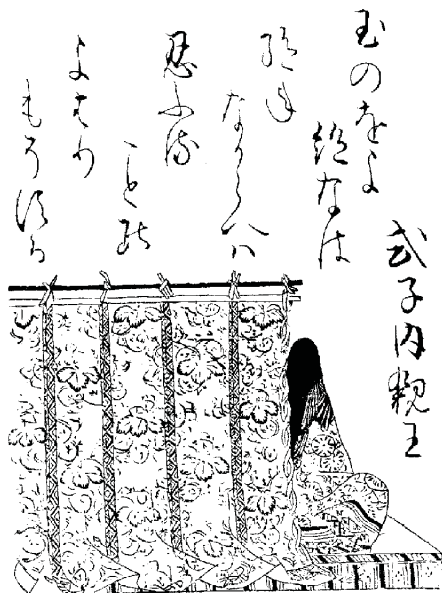 式子内親王
玉のをよ
絶なは
絶ね
なからへハ
忍ふる
ことの
よはり
もそする